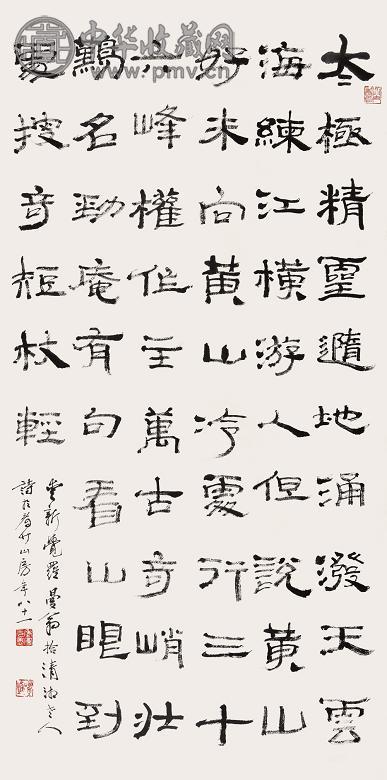 太極精靈隨地涌潑天雲
海練江橫游人但說黃山
好未向黃山冷處行三十
六峰權作主萬古奇峭壯
名勁庵有句看山眼到
處搜奇短杖輕
愛新覺羅曼翁拾清湘老人
詩於竹山房年八十一
中华收藏网
www.pmv.cn